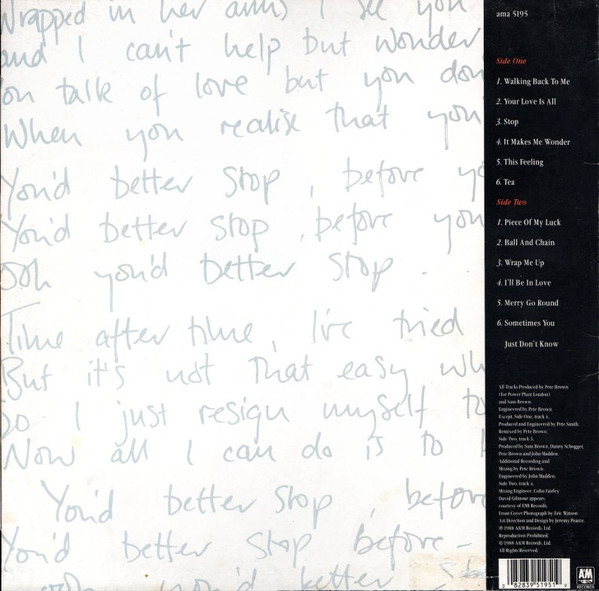 Wrapped in her arms I see you
and I can't help but wonder
on talk of love but you don
When you realise that you
You'd better stop, before yo
You'd better stop, before you
Ooh you'd better stop.
Time after time, I've tried
But it's not that easy wh
so I just resign myself to
Now all I can do is to
You'd better stop, before
You'd better stop before-
ooh you'd better sto
ama 5195
Side One
1. Walking Back To Me
2. Your Love Is All
3. Stop
4. It Makes Me Wonder
5. This Feeling
6. Tea
Side Two
1. Piece Of My Luck
2. Ball And Chain
3. Wrap Me Up
4. I'll Be In Love
5. Merry Go Round
6. Sometimes You
Just Don't Know
All Tracks Produced by Pete Brown
(for Power Plant London)
and Sam Brown
Engineered by Pete Brown.
Except, Side One, track 5,
Produced and Engineered by Pete Smith.
Remixed by Pete Brown.
Side Two, track 3,
Produced by Sam Brown, Danny Schogger,
Pete Brown and John Madden.
Additional Recording and
Mixing by Pete Brown.
Engineered by John Madden.
Side Two, track 5,
Mixing Engineer. Colin Fairley
David Gilmour appears
courtesy of EMI Records.
Front Cover Photograph by Eric Watson
Art Direction and Design by Jeremy Pearce.
℗ 1988 A&M Records, Ltd.
Reproduction Prohibited.
© 1988 A&M Records, Ltd.
All Rights Reserved.
0 82839 51951 9
A&M
RECORDS